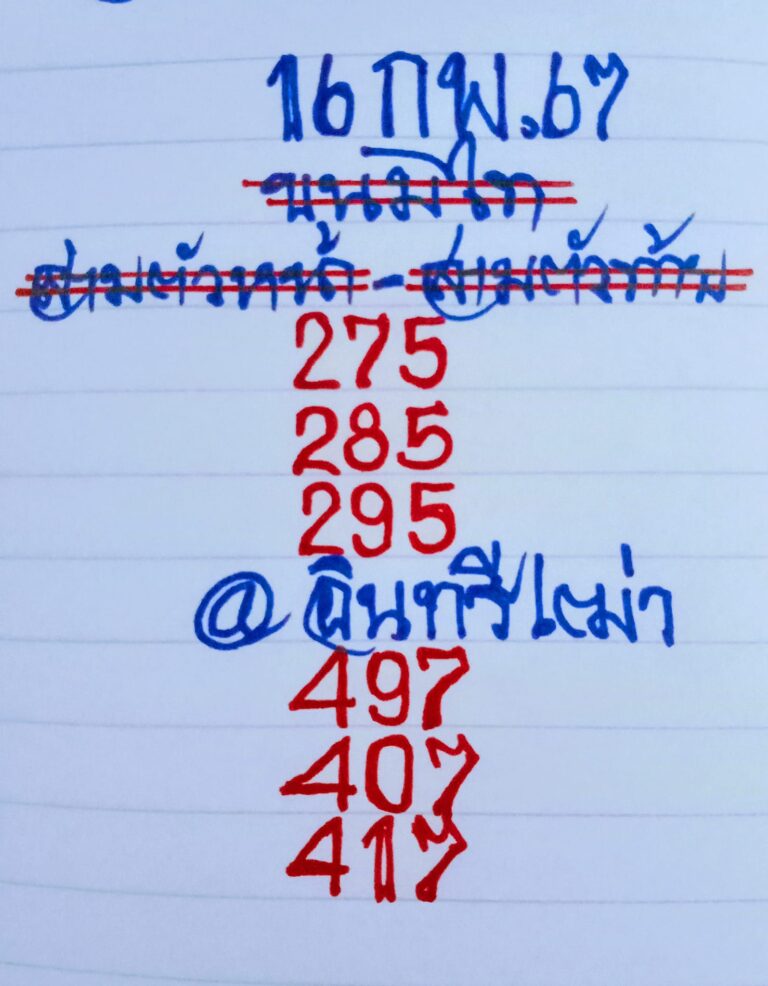 16 กพ.67
ขุนมีไท
สามตัวหน้า - สามตัวท้าย
275
285
295
@อินทรีเฒ่า
497
407
417